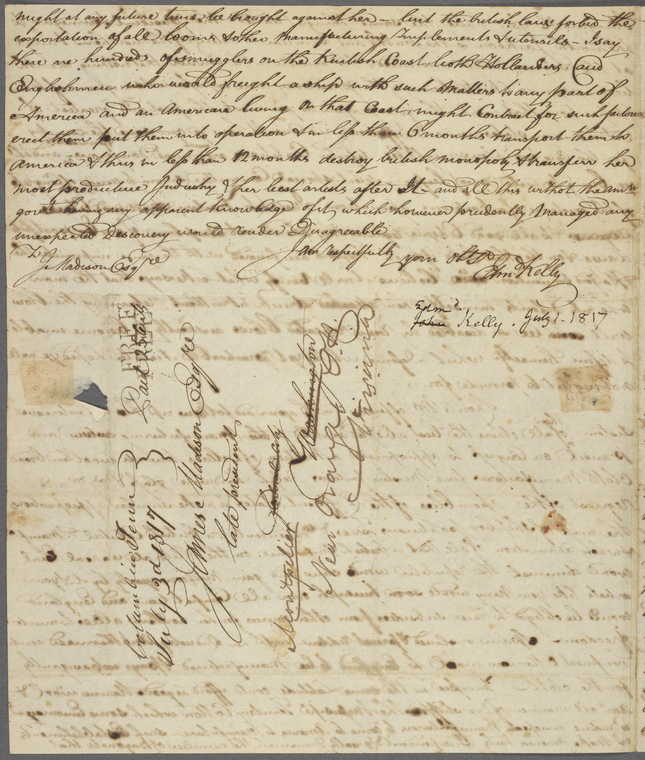 might at any future time be brought against her – but the british laws forbid the
exportation of all looms & other manufacturing Implements & utensils – I say
there are hundreds of smugglers on the Kentish Coast both Hollanders and
Englishmen who would freight a ship with such matters to any part of
America and an American living on that Coast might Contract for such
erect them put them into operation & in less than 6 months transport them to
America & thus in less than 12 months destroy british monopoly & transferr her
most productive Industry & her best artists after It – and all this without the amn
govt having any apparent Knowledge of it, which however prudently managed any
unexpected Descovery would render Disagreeable
I am respectfully yours Obt
J. Madison Esqre
Edm Kelly
Edmd.
John Kelly. July 1. 1817
FREE
Paid
Columbia Tenn
July 3d 1817
James Madison Esqre
late president
Washington
Montpelier
Near Orange C.H.
Virginia